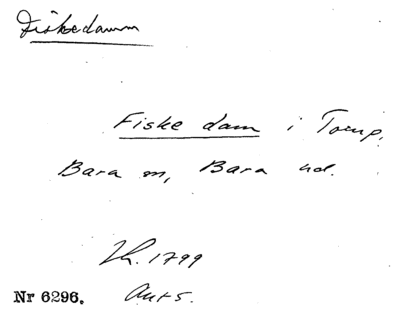 Fiskedamm
Fiske dam i Torup,
Bara sn, Bara hd.
Th. 1799
Nr 6296. Ant 5.